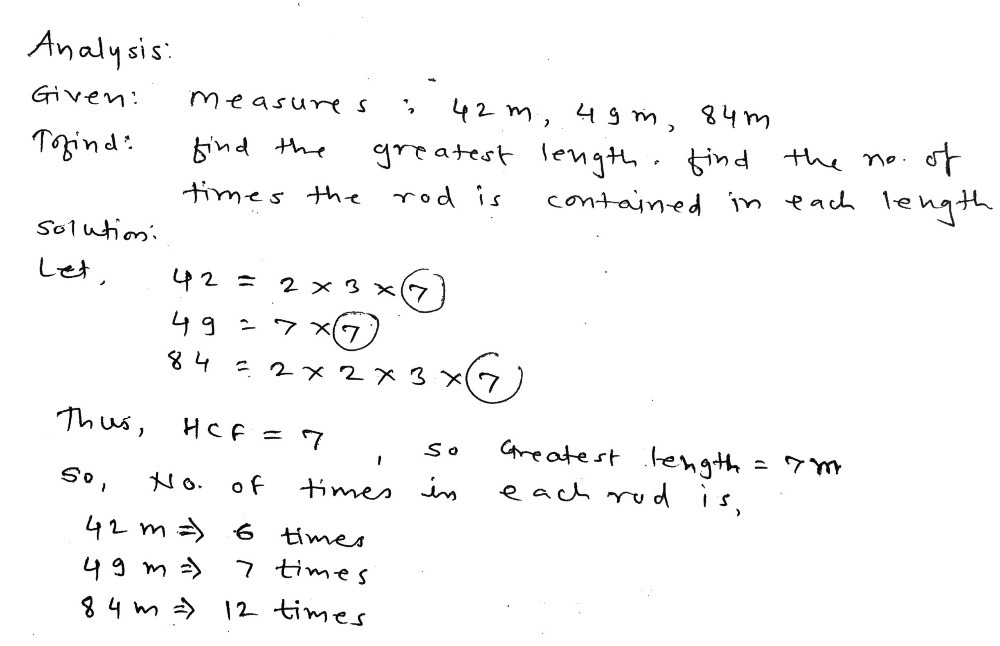 Analysis:
Given: measures : 42 m, 49 m, 84 m
Tofind: find the greatest length. find the no. of
times the rod is contained in each length
Solution:
Let, 42 = 2 × 3 × 7
49 = 7 × 7
84 = 2 × 2 × 3 × 7
Thus, HCF = 7, so Greatest length = 7m
So, No. of times in each rod is,
42 m ⇒ 6 times
49 m ⇒ 7 times
84 m ⇒ 12 times